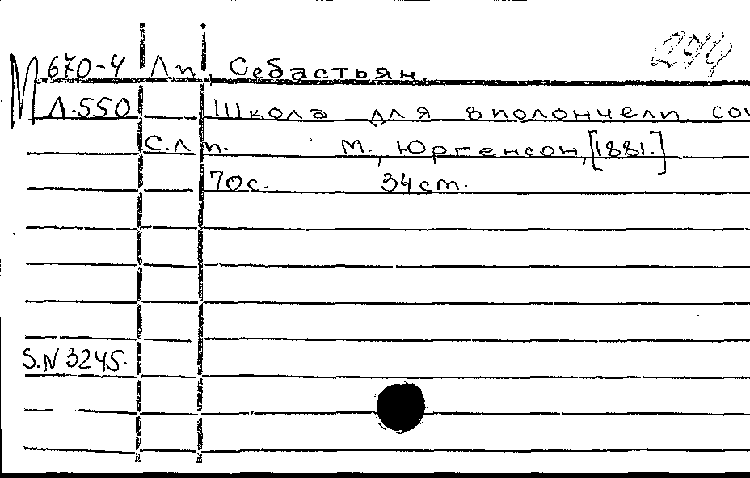 294
М 670-4 Лп, Себастьян.
Л.550 Школа для виолончели соч
С.Лп. М., Юргенсон, [1881.]
70с. 34см.
S.N 3245.